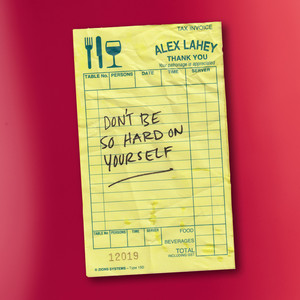 TAX INVOICE
ALEX LAHEY
THANK YOU
Your patronage is appreciated
TABLE No. PERSONS DATE TIME SERVER
DON'T BE
SO HARD ON
YOURSELF
TABLE No. PERSONS TIME SERVER FOOD
BEVERAGES
TOTAL
INCLUDING GST
12019